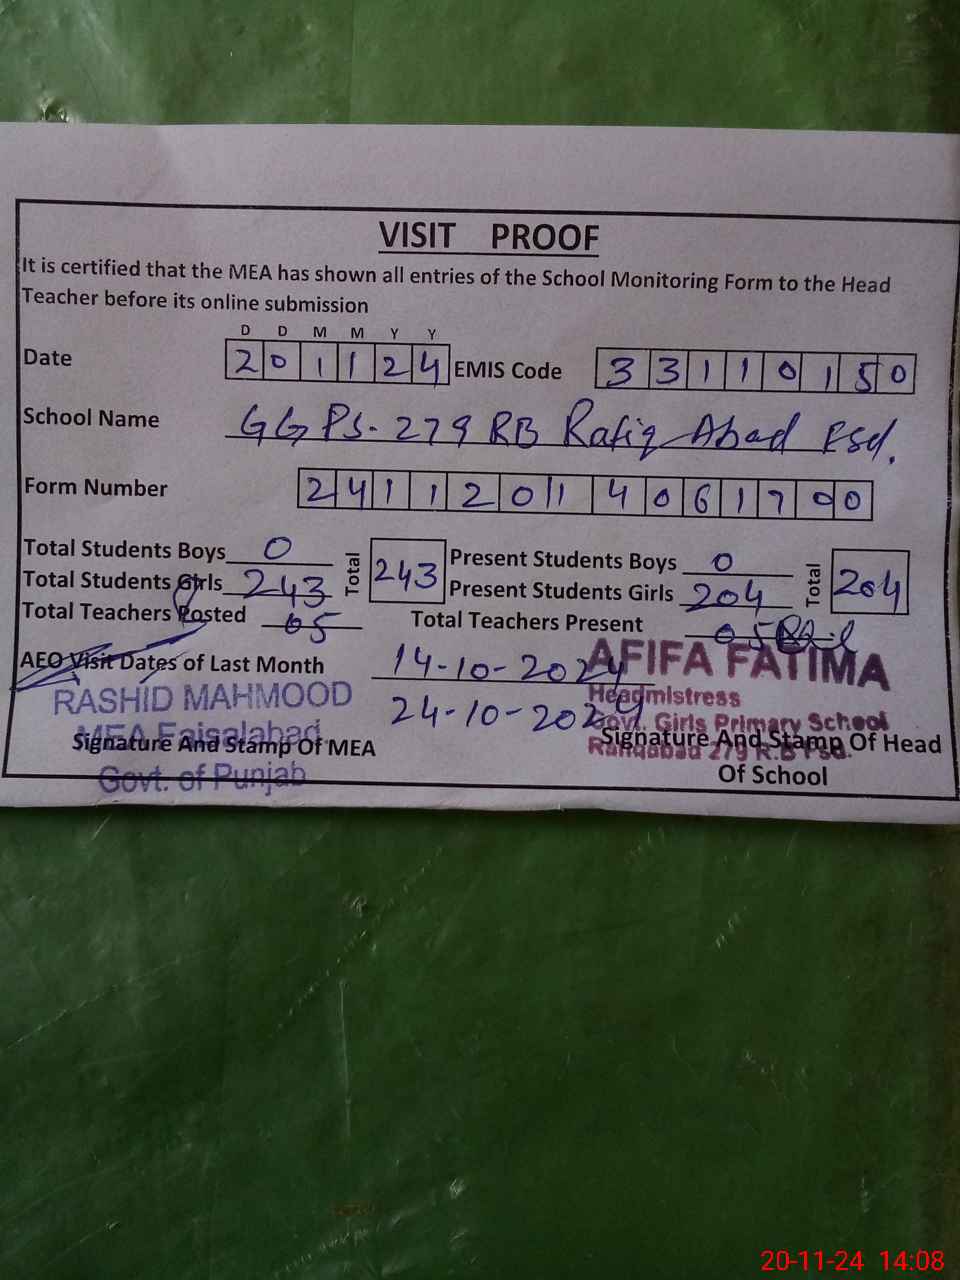 VISIT PROOF
It is certified that the MEA has shown all entries of the School Monitoring Form to the Head
Teacher before its online submission
D D M M Y Y
Date 2 0 1 1 2 4 EMIS Code 3 3 1 1 0 1 5 0
School Name GGPS. 279 RB Rafiq Abad Fsd.
Form Number 2 4 1 1 2 0 1 4 0 6 1 7 0 0
Total Students Boys 0 Total 243 Present Students Boys 0 Total 204
Total Students Girls 243 Present Students Girls 204
Total Teachers Posted 05 Total Teachers Present 05
AEO Visit Dates of Last Month 14-10-2024
24-10-2024
RASHID MAHMOOD
MEA Faisalabad
Govt. of Punjab
Signature And Stamp Of MEA
AFIFA FATIMA
Headmistress
Govt. Girls Primary School
279 R.B Fsd.
Signature And Stamp Of Head
Of School
20-11-24 14:08